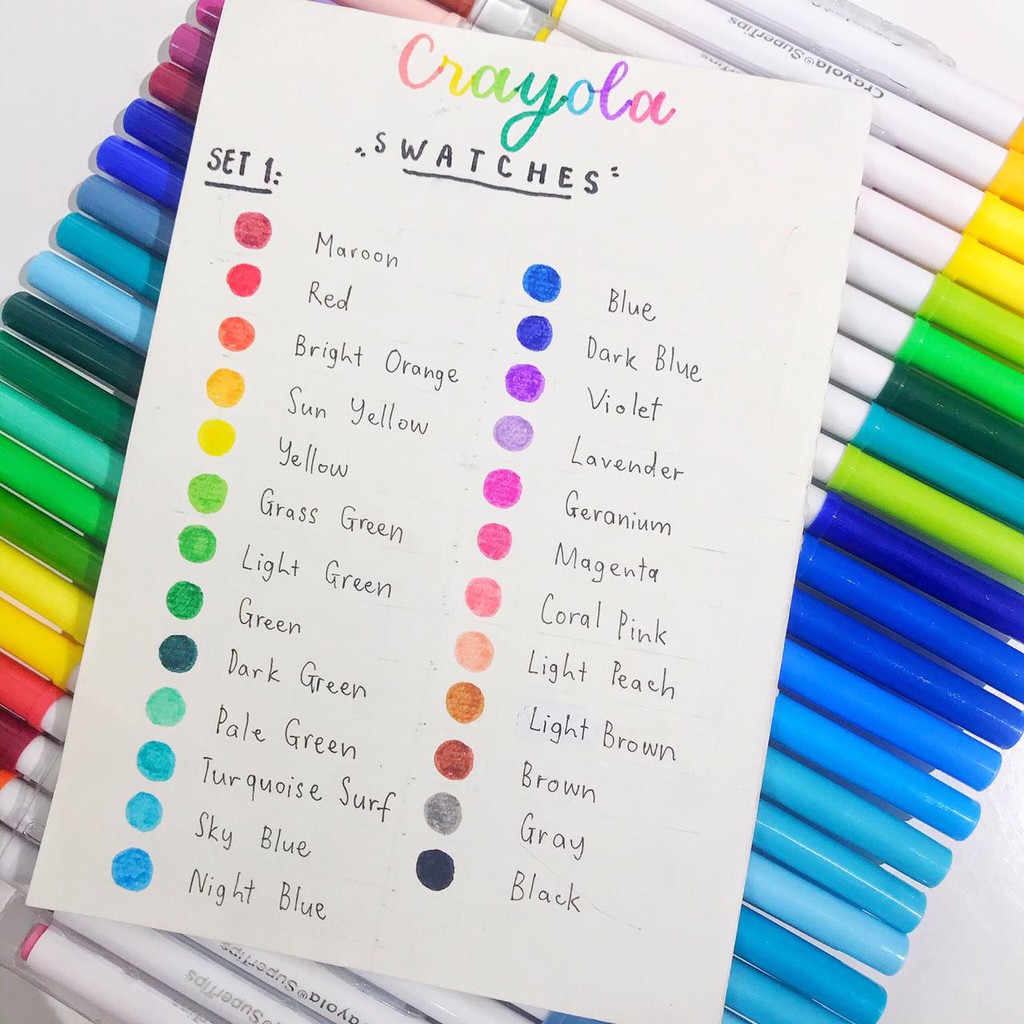 Crayola
SWATCHES
SET 1:
Maroon
Red
Bright Orange
Sun Yellow
Yellow
Grass Green
Light Green
Green
Dark Green
Pale Green
Turquoise Surf
Sky Blue
Night Blue
Blue
Dark Blue
Violet
Lavender
Geranium
Magenta
Coral Pink
Light Peach
Light Brown
Brown
Gray
Black
Crayola® SuperTips
Crayola® SuperTips
Crayola® SuperTips